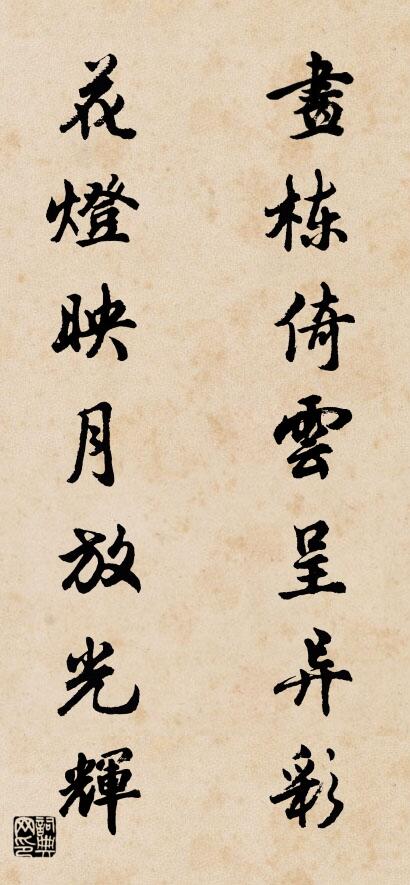 畫栋倚雲呈异彩
花燈映月放光輝
詞典网印